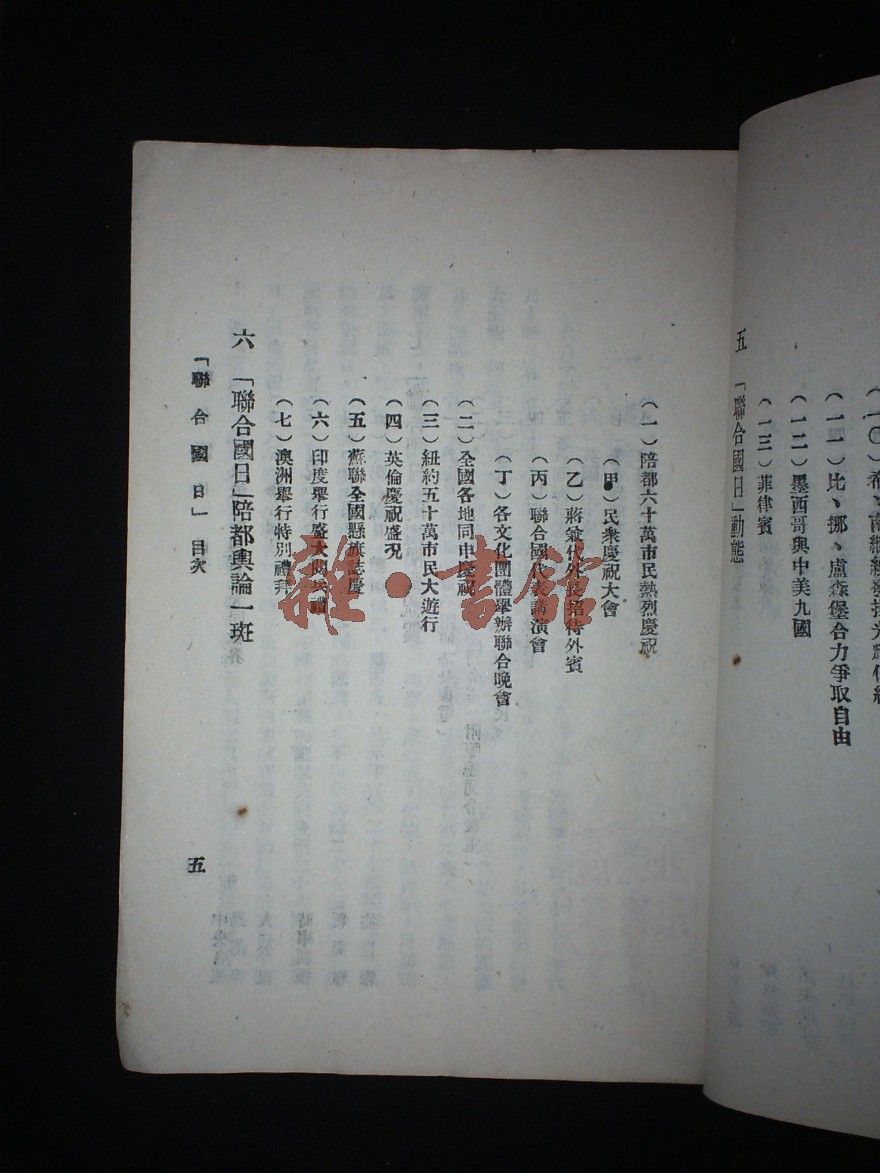 (一〇)希、南繼續發揚光輝傳統
(一一)比、挪、盧森堡合力爭取自由
(一二)墨西哥與中美九國
(一三)菲律賓
五 「聯合國日」動態
(一)陪都六十萬市民熱烈慶祝
(甲)民衆慶祝大會
(乙)蔣兼代外長招待外賓
(丙)聯合國代表講演會
(丁)各文化團體舉辦聯合晚會
(二)全國各地同申慶祝
(三)紐約五十萬市民大遊行
(四)英倫慶祝盛況
(五)蘇聯全國懸旗誌慶
(六)印度舉行盛大閱兵禮
(七)澳洲舉行特別禮拜
六 「聯合國日」陪都輿論一斑
「聯合國日」目次
五
雜·書館